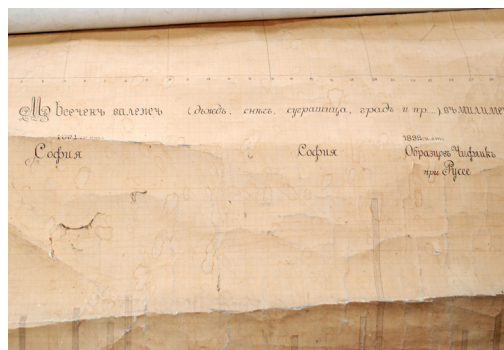 Мѣсеченъ валежъ (дъждъ, снѣгъ, суграшица, градъ и пр..) въ милиме
1891
1892 г. от.
София София Образцовъ Чифликъ
при Руссе